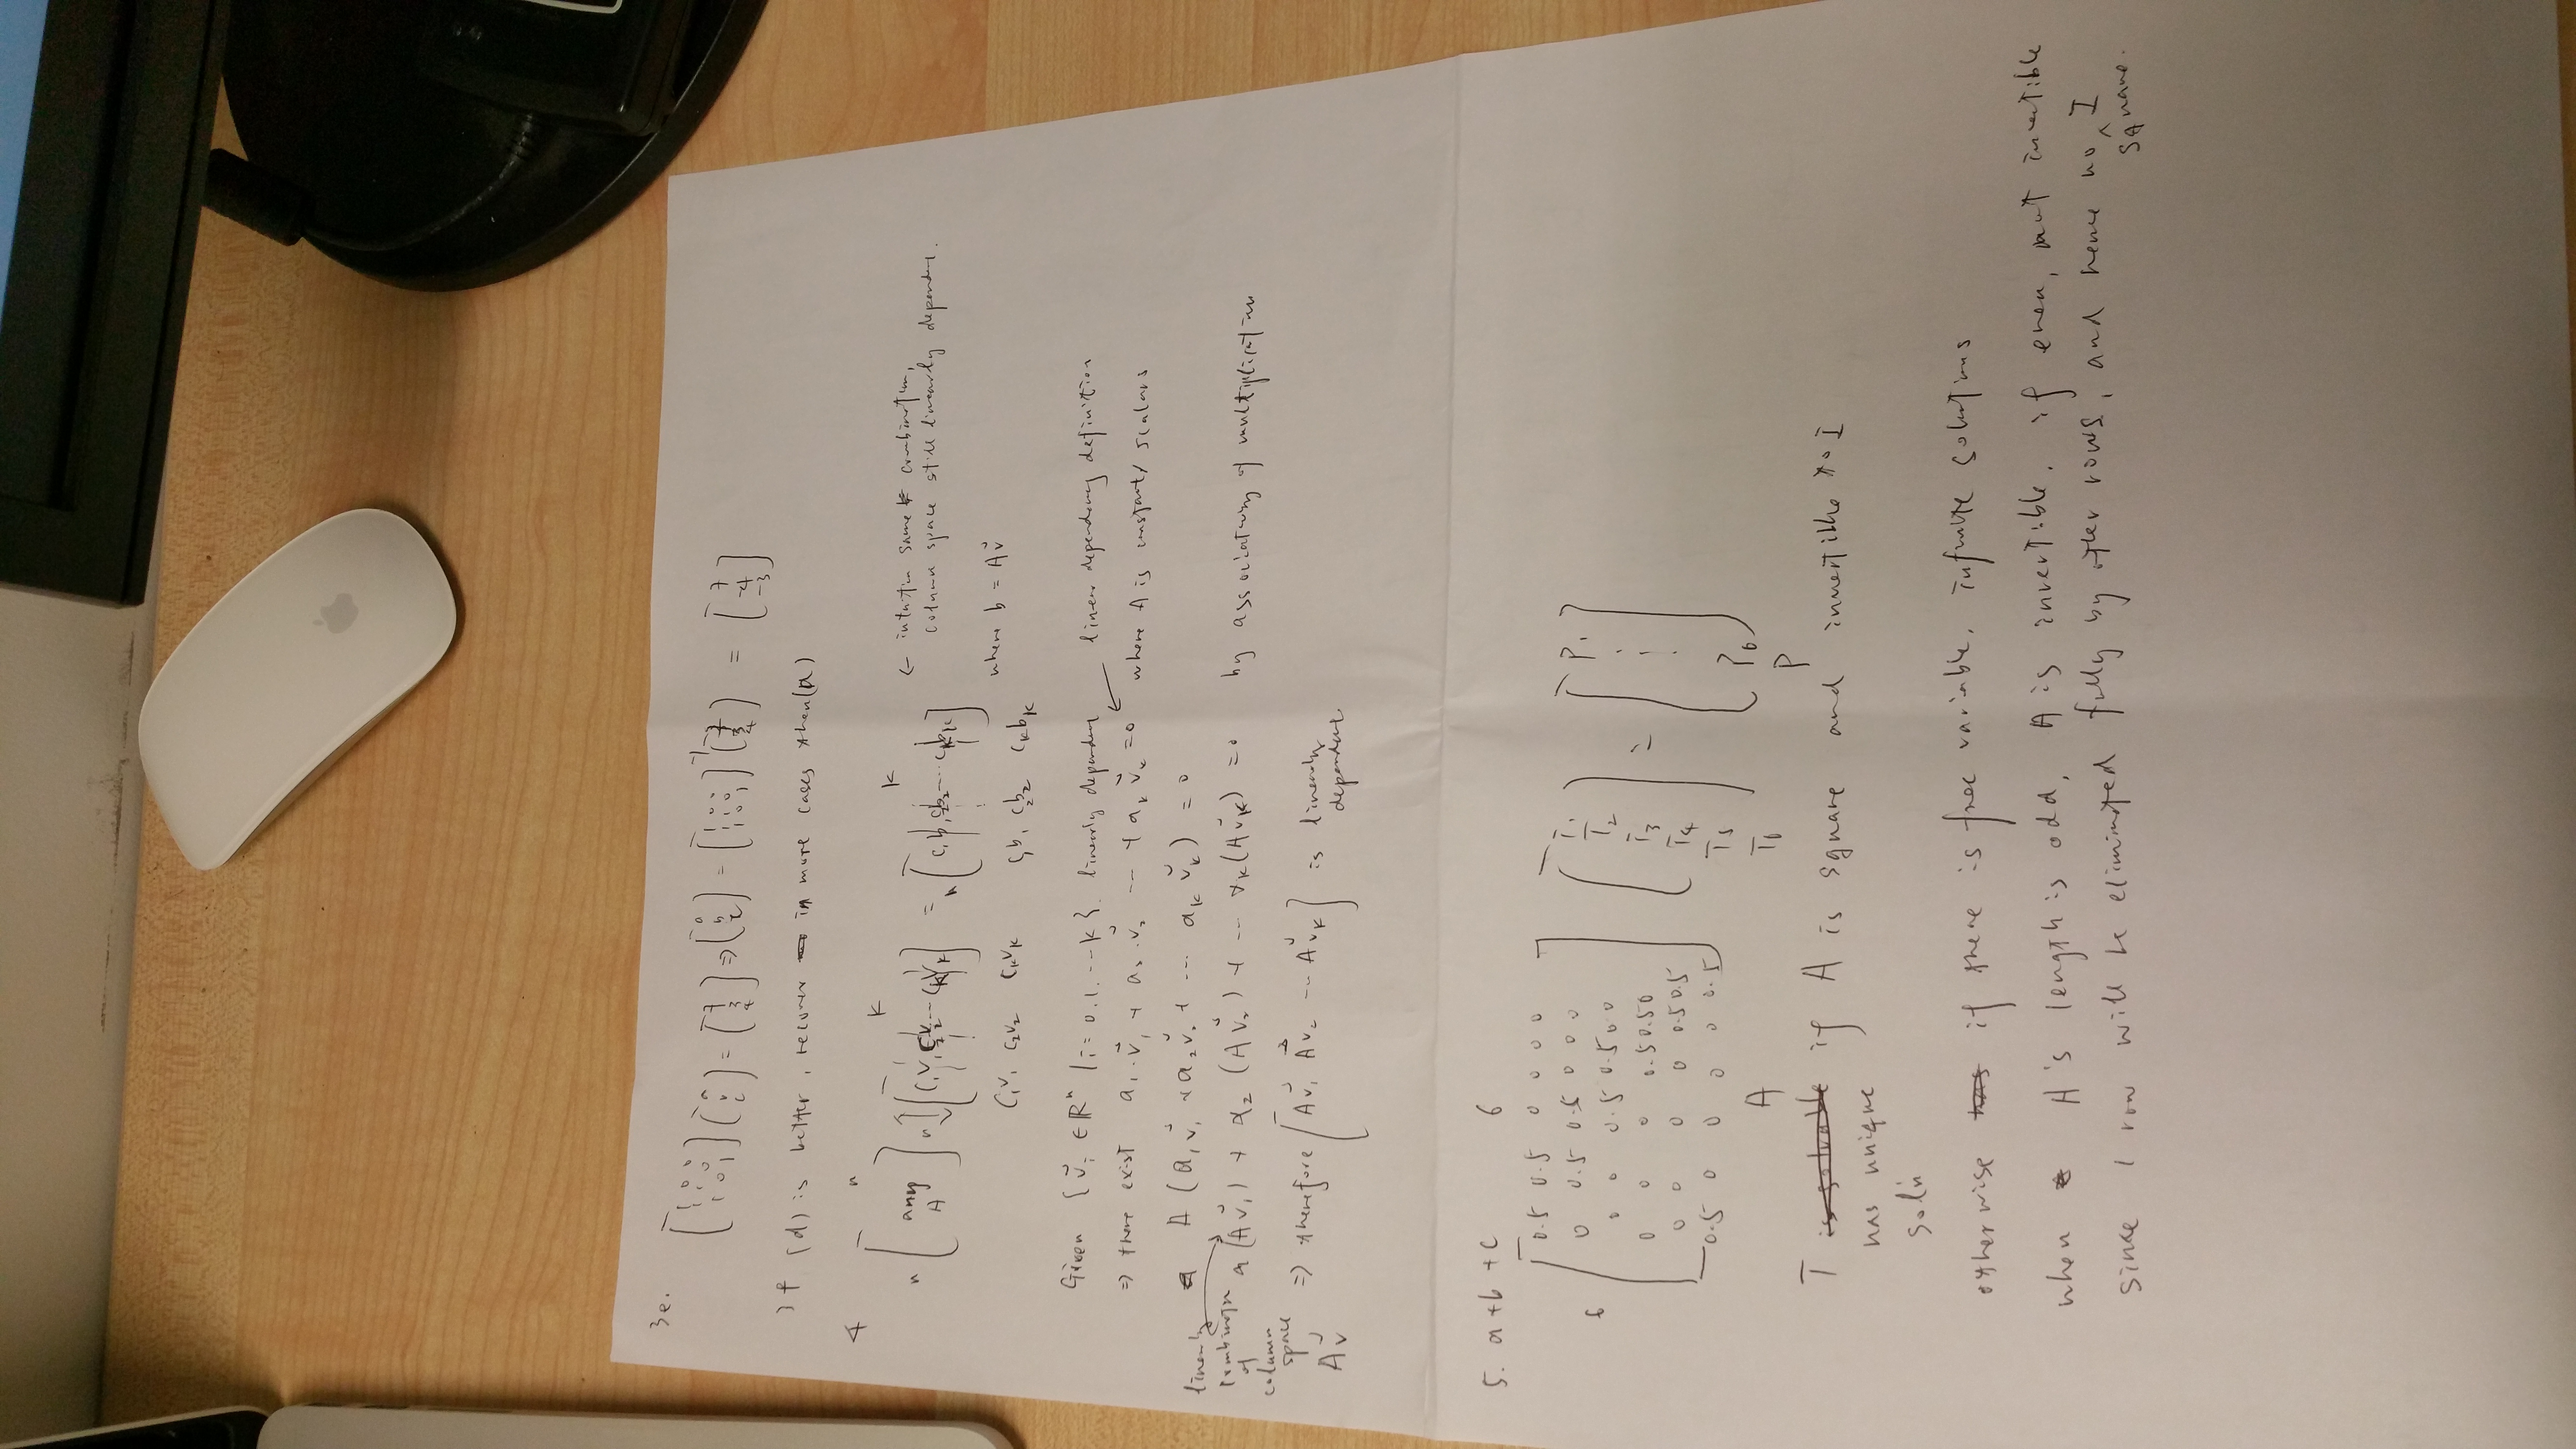 3e.
[1 0 0 [a [7 [a [1 0 0 -1 [7 [7
1 1 0 b = 3 => b = 1 1 0 3 = -4
1 0 1] c] 4] c] 1 0 1] 4] -3]
3f (d) is better, recover in more cases then (a)
4
n K K
n [any A] n [C₁V₁ C₂V₂ ... CₖVₖ] = n [C₁b₁ C₂b₂ ... Cₖbₖ] ← intuition same combination,
column space still linearly dependent.
C₁V₁ C₂V₂ CₖVₖ C₁b₁ C₂b₂ Cₖbₖ where b = Av⃗
Given {v⃗ᵢ ∈ ℝⁿ | i = 0.1. ... k}. linearly dependent linear dependency definition
=> there exist a₁·v⃗₁ + a₂·v⃗₂ ... + aₖv⃗ₖ = 0 ← where A is constant/scalars
A (a₁v⃗₁ + a₂v⃗₂ + ... aₖv⃗ₖ) = 0
linearly combination of column space Av⃗
a(Av⃗₁) + α₂(Av⃗₂) + ... αₖ(Av⃗ₖ) = 0 by associativity of multiplication
=> therefore [Av⃗₁ Av⃗₂ ... Av⃗ₖ] is linearly
dependent.
5. a+b+c 6
0.5 0.5 0 0 0 0 T₁ P₁
6 0 0.5 0.5 0 0 0 T₂
0 0 0.5 0.5 0 0 T₃ =
0 0 0 0.5 0.5 0 T₄
0 0 0 0 0.5 0.5 T₅
0.5 0 0 0 0 0.5 T₆ P₆
A P
T is solvable if A is square and invertible to I
has unique
soln
otherwise has if there is free variable. infinite solutions
when A's length is odd, A is invertible. if even, not invertible
since 1 row will be eliminated fully by other rows, and hence no square I